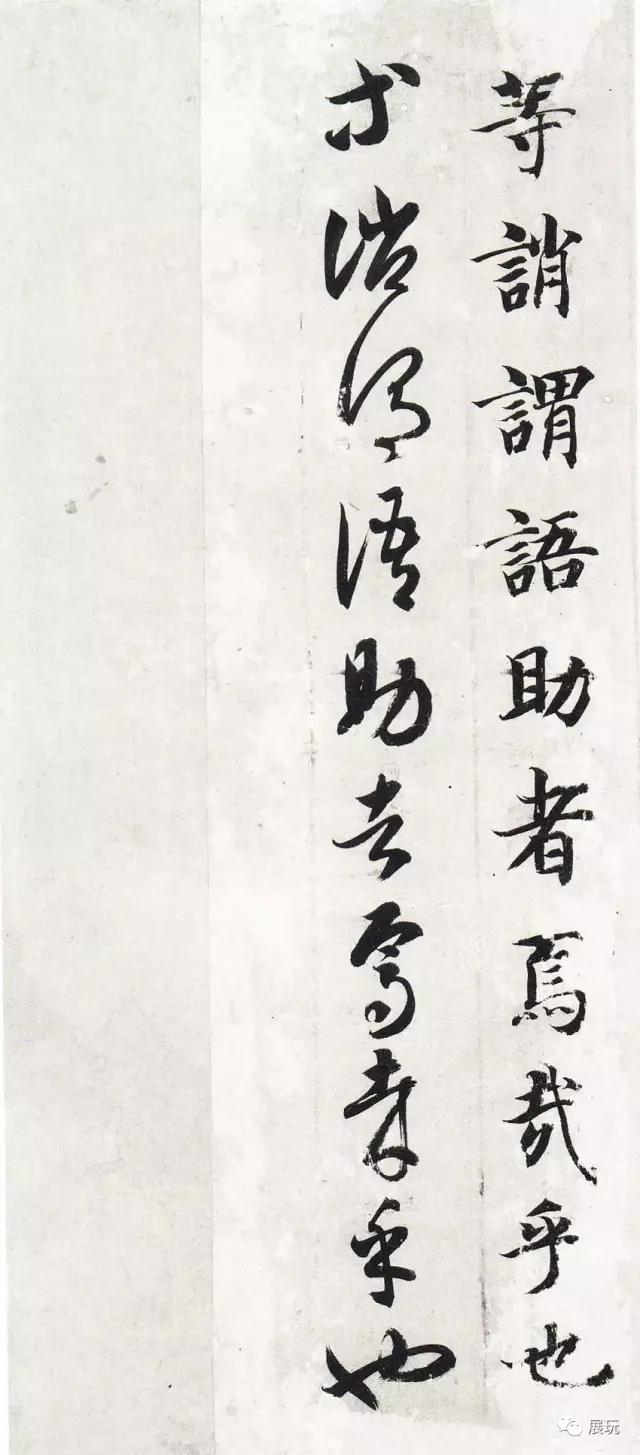 等誚謂語助者焉哉乎也
等誚謂語助者焉哉乎也
展玩